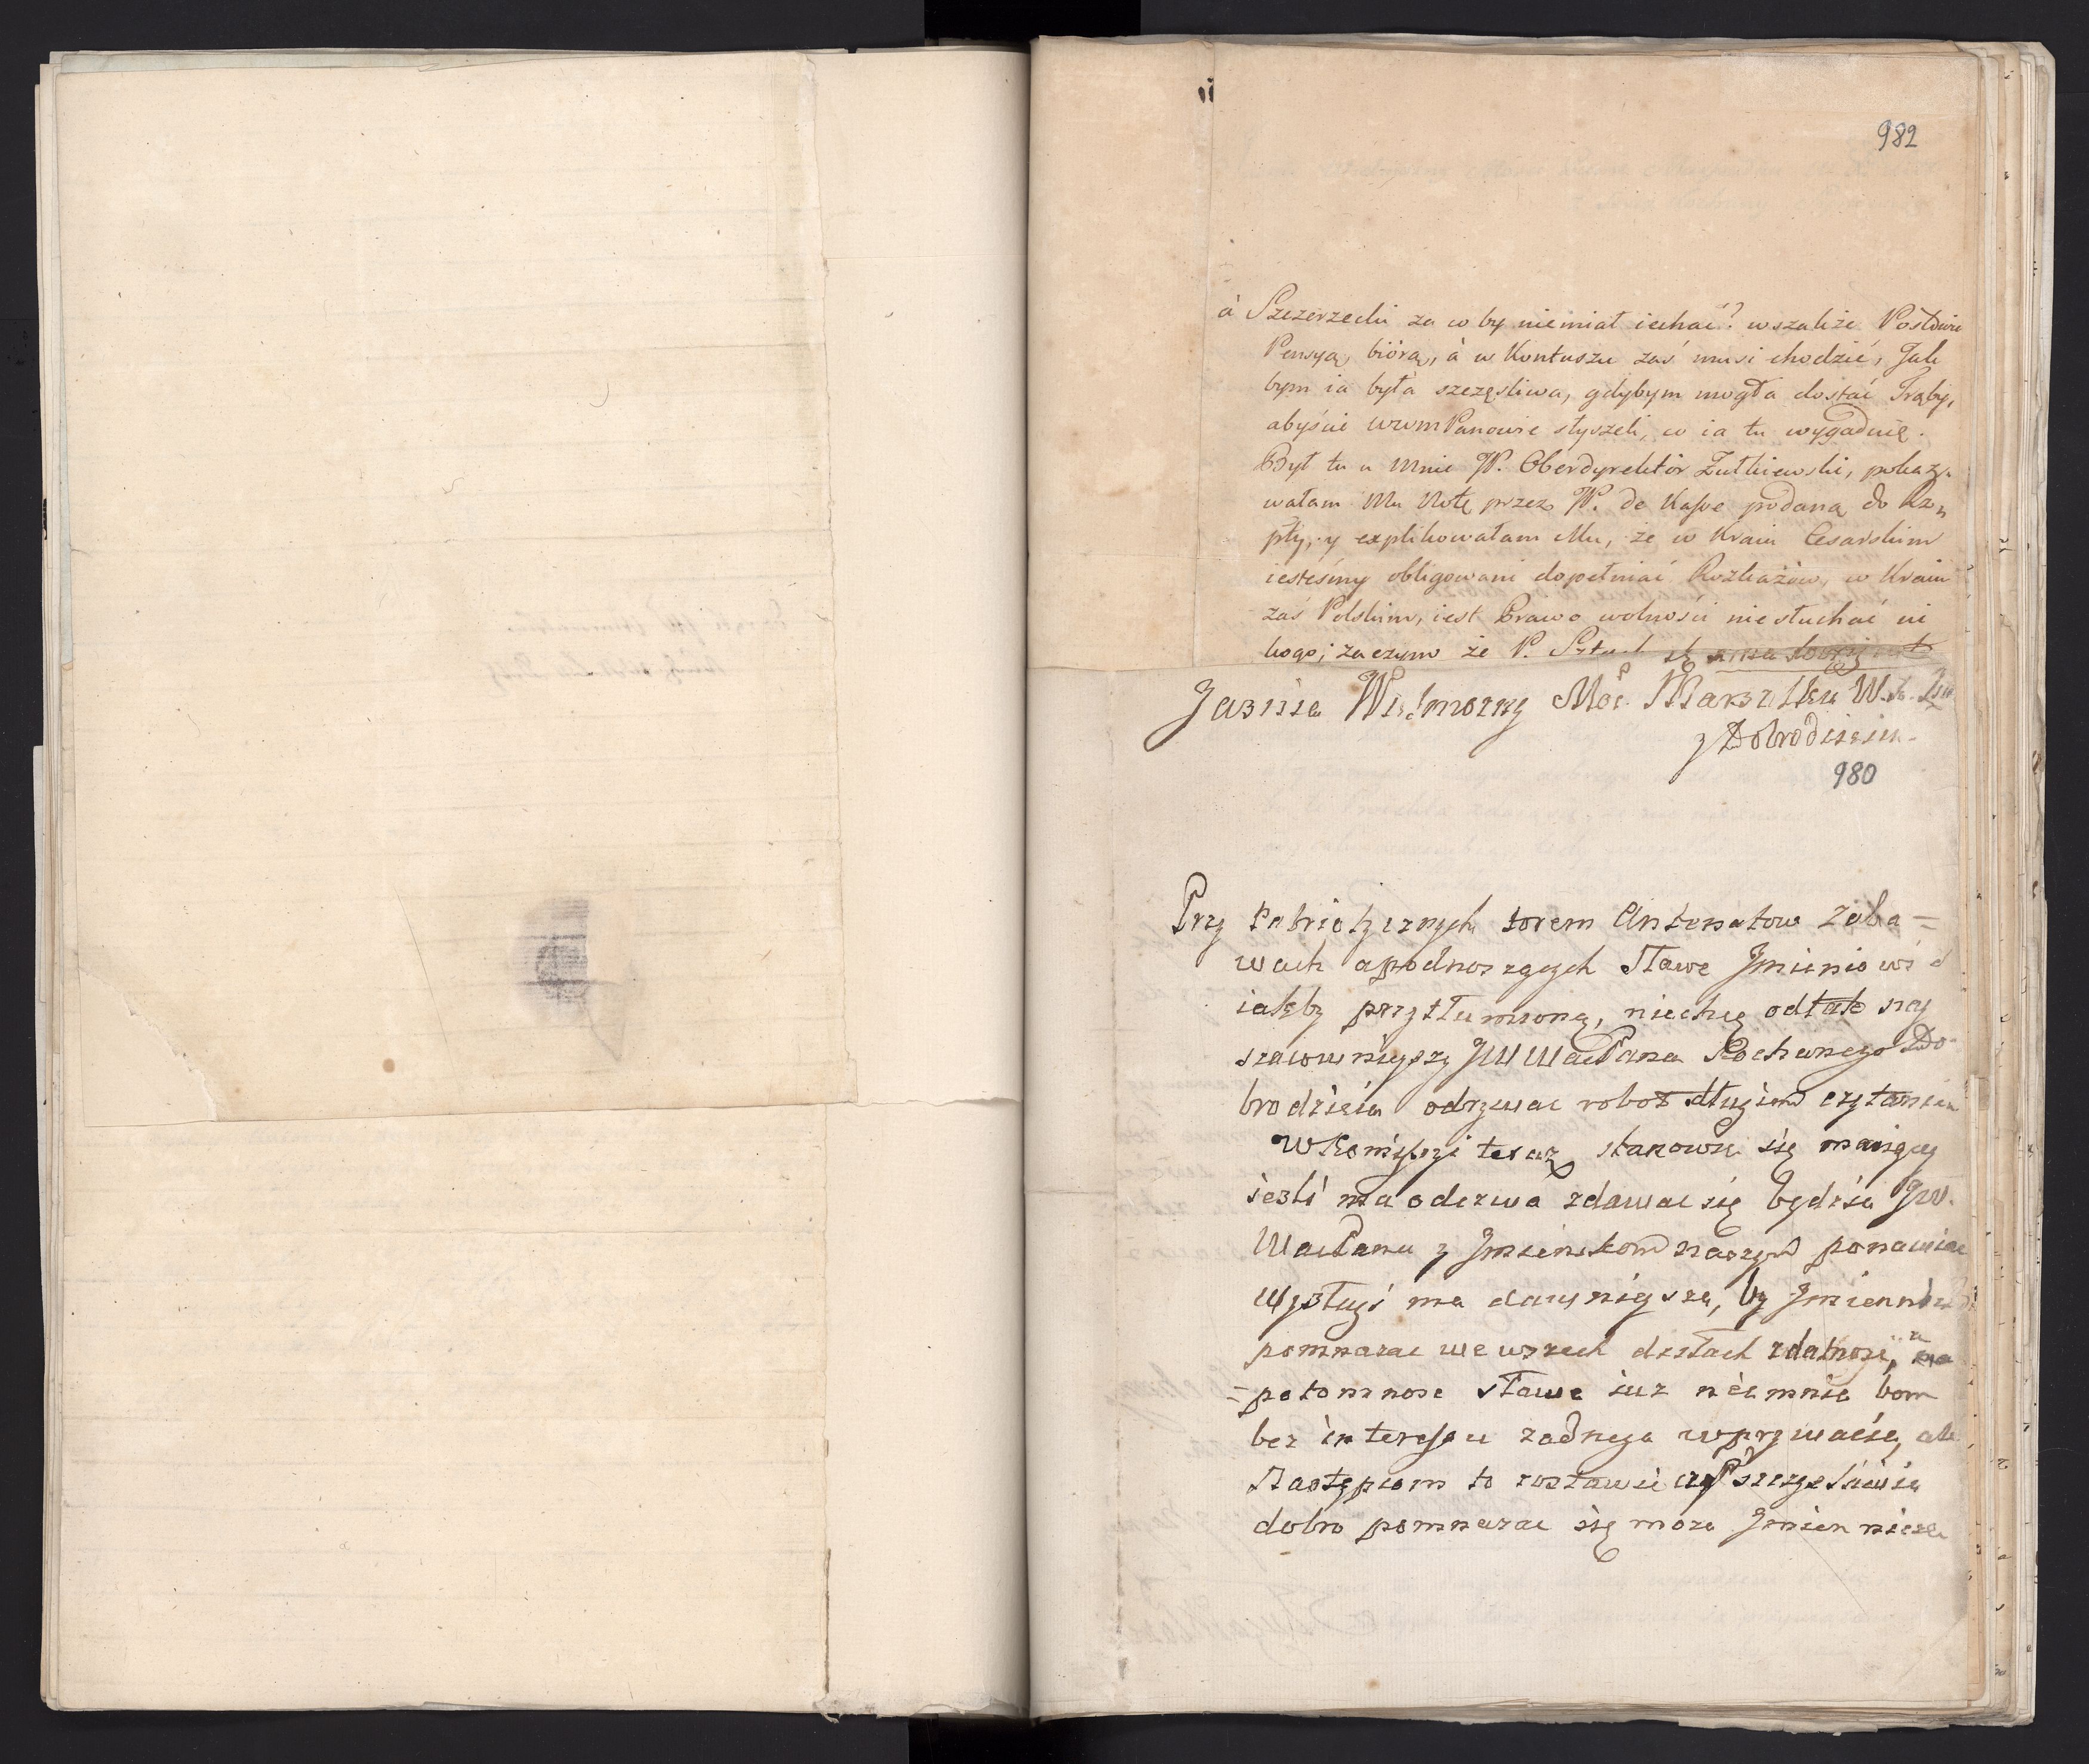 982
à Szczerzecki za co by niemiał iechać? wszakże Posłowie
Pensyą biorą, à w Kontuszu zaś musi chodzić, Jak
bym ia była szczęsliwa, gdybym mogła dostać Trąby,
abyście WWmPanowie słyszeli, co ia tu wygadnię.
Był tu u mnie JP. Oberdyrektor Zutkiewski, pokazy
wałam Mu Notę przez JP. de Kasse podaną do Rzp
plty, y explikowałam Mu, że w Kraiu Cesarskim
iesteśmy obligowani dopełniać Rozkazów, w Kraiu
zaś Polskim, iest Prawo wolności niesłuchać ni
kogo; zaczym że P.
Jasnie Wielmozny Mości Marszałku W.
y Dobrodzieiu
980
Przy Patriotycznych torem Antenatow Zaba=
wach a podnoszących sławę Jmieniowi
iakby przytłumioną, niechcę odtak nay
szacownieyszy JWWaćPana Kochanego Do
brodzieia odrywac robot długim czytaniem
w Komissyi teraz stanowic się maiącey
iesli ma odezwa zdawac się będzie JW.
WaćPanu z Jmienikom naszym ponawiac
Wysługi ma dawnieysza, by
pomnazac we wszech dziełach zdatnosc, na
=potomnosc sławe iuz niemnie bom
bez interessu zadnego w oprzywacie, ale
Następcom to zostawic a szczęsliwie
dobro pomnazac się moze